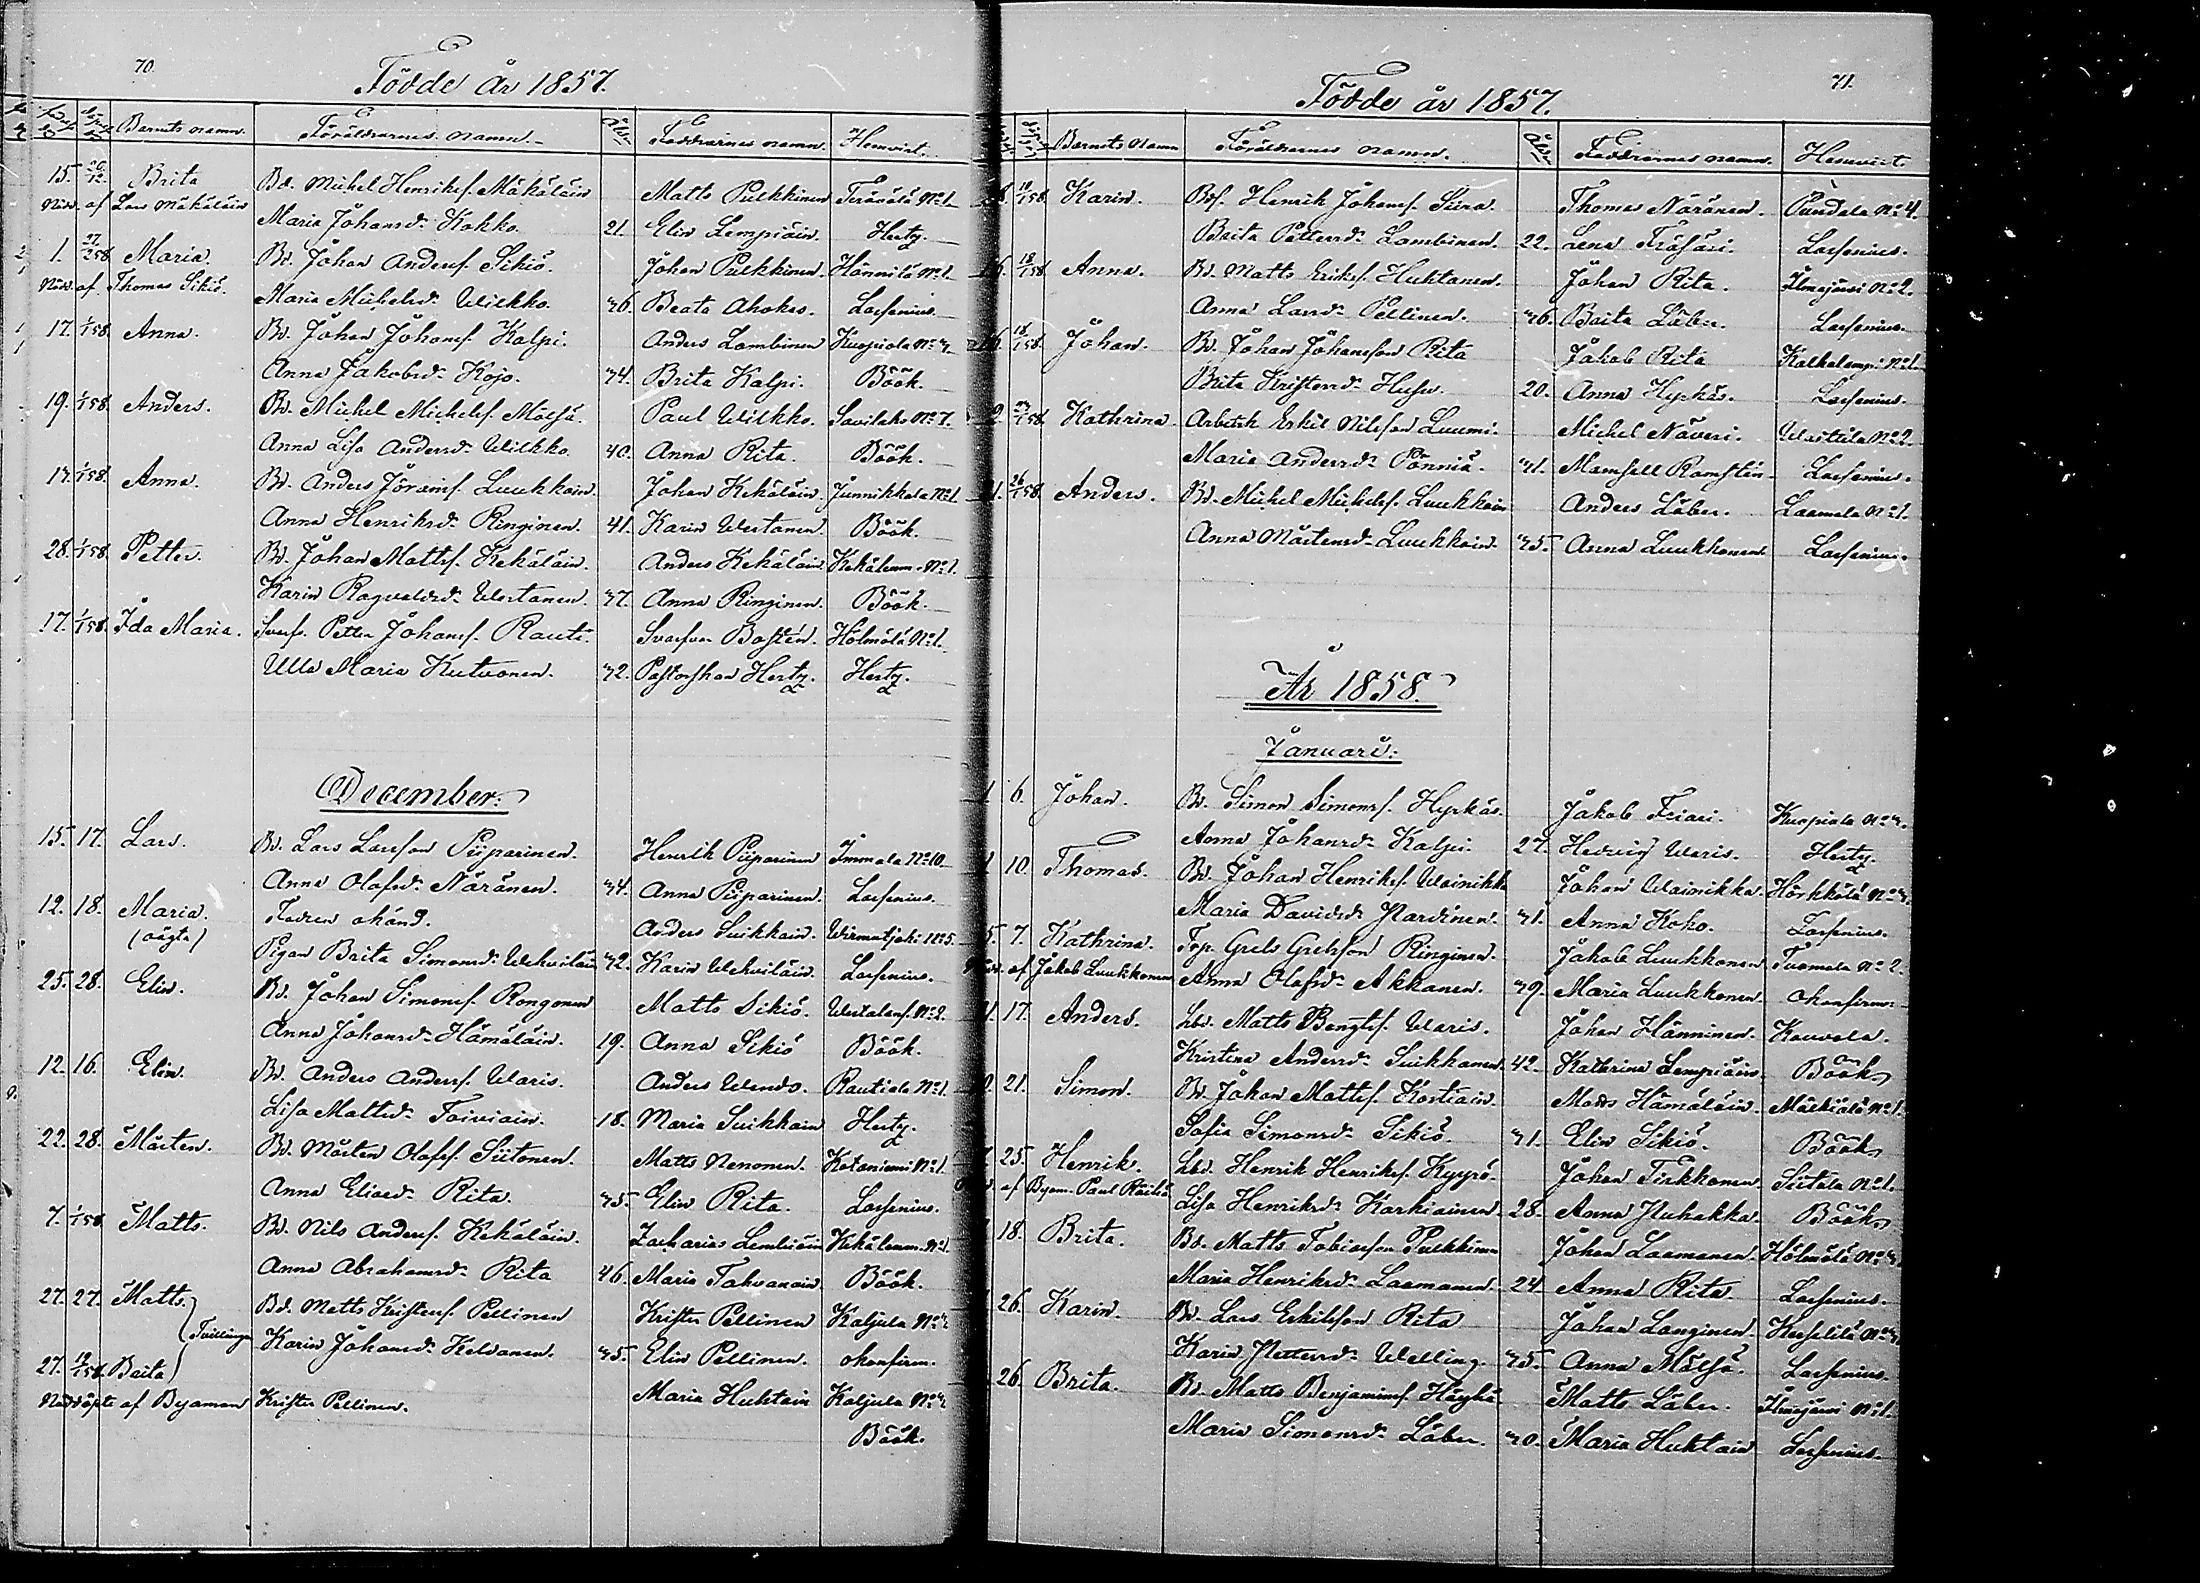 70.
Födde År 1857.
Barnets namn. Föräldrarnes namn. Ålder Faddrarnes namn. Hemvist.
15. 26/12. Brita Bd. Michel Henriksf. Mäkäläin Matts Pulkkinen Terävälä No 1.
Nöd. af Lars Mäkäläin Maria Johansd. Kokko. 21. Elin Lempiäin. Hertz.
1. 27/258. Maria. Bd. Johan Andersf. Sikiö. Johan Pulkkinen. Hännilä No 1.
Nöd. af Thomas Sikiö. Maria Michelsd. Wilkko. 36. Beata Ahokas. Lorsenius.
17. 1/158. Anna. Bd. Johan Johansf. Kalpi. Anders Lambinen Kuopiala No 3.
Anna Jakobsd. Kojo. 34. Brita Kalpi. Böök.
19. 1/158. Anders. Bd. Michel Michelsf. Mälsä. Paul Wilkko. Savilaks No 7.
Anna Lisa Andersd. Wilkko. 40. Anna Rita. Böök.
14. 1/158. Anna. Bd. Anders Göransf. Luukkain. Johan Kekäläin. Junnikkala No 1.
Anna Henriksd. Ringinen. 41. Karin Westanen. Böök.
28. 1/158. Petter. Bd. Johan Mattsf. Kekäläin. Anders Kekäläin. Kekälenm. No 1.
Karin Ragvaldsd. Westanen. 37. Anna Ringinen. Böök.
17. 1/158. Ida Maria. Svarfv. Petter Johansf. Rauti. Svarfvar Bostén. Holmälä No 1.
Ulla Maria Kutvonen. 32. Pastorskan Hertz. Hertz.
December:
15. 17. Lars. Bd. Lars Larsson Piiparinen. Henrik Piiparinen Immala No 10.
Anna Olofsd. Näränen. 34. Anna Piiparinen. Lorsenius.
12. 18. Maria. Fadren okänd. Anders Suikkain. Wirmutjoki No 5.
(oägta) Pigan Brita Simonsd. Wehviläin 32. Karin Wehviläin. Lorsenius.
25. 28. Elin. Bd. Johan Simonsf. Rongonen Matts Sikiö. Westalanf. No 2.
Anna Johansd. Hämäläin. 19. Anna Sikiö Böök.
12. 16. Elin. Bd. Anders Andersf. Waris. Anders Wando. Rautiala No 1.
Lisa Mattsd. Toiviain. 18. Maria Suikkain Hertz.
22. 28. Mårten. Bd. Mårten Olofsf. Siitonen. Matts Nenonen. Kotaniemi No 1.
Anna Eliaed. Rita. 35. Elin Rita. Lorsenius.
7. 1/158. Matts. Bd. Nils Andersf. Kekäläin. Zacharias Lembiäin Kekälenm. No 1.
Anna Abrahamsd. Rita 46. Maria Tahvanain Böök.
27. 27. Matts. Bd. Matts Kristersf. Pellinen Krister Pellinen Kaljula No 3
Tvillingar Karin Johansd. Keldanen. 35. Elin Pellinen. okonfirm.
27. 19/158. Brita Maria Huhtain Kaljula No 3
Nöddöpte af Byaman Krister Pellinen.
Böök.
71.
Födde år 1857.
Barnets Namn Föräldrarnes namn. Ålder Faddrarnes namn. Hemvist
10/158. Karin. Bdf. Henrik Johansf. Siira. Thomas Näränen. Pundala No 4.
Brita Pettersd. Lambinen. 22. Lena Träsäri. Lorsenius.
18/158 Anna. Bd. Matts Eriksf. Huhtanen. Johan Rita. Ilmajärvi No 2.
Anna Larsd. Pellinen. 36. Brita Läber. Lorsenius.
18/158 Johan. Bd. Johan Johansson Rita Jakob Rita Kalkalampi No 1.
Brita Kristersd. Husu. 20. Anna Hyrkäs. Lorsenius.
158 Kathrina. Arbetsk. Erkil Nilsson Luumi. Michel Näveri. Wastula No 2.
Maria Andersd. Pönniä. 31. Mamsell Ramstén Lorsenius.
26/158. Anders. Bd. Michel Michelsf. Luukkain Anders Läber. Laamala No 1.
Anna Mårtensd. Luukkain 35. Anna Luukkanen Lorsenius.
År 1858.
Januari:
1. 6. Johan. Bd. Simon Simonsf. Hyrkäs. Jakob Friari. Kuopiala No 3.
Anna Johansd. Kalpi. 27. Hedvig Waris. Hertz.
1 10. Thomas. Bd. Johan Henriksf. Wainikka Johan Wainikka. Hörkkölä No 3.
Maria Davidsd. Nardinen. 31. Anna Koko. Lorsenius.
5. 7. Kathrina. Torp. Grels Grelsson Ringinen. Jakob Luukkonen Tuomala No 2.
af Jakob Luukkonen Anna Olofsd. Akkanen. 39. Maria Luukkonen okonfirm.
17. Anders. Lbd. Matts Bengtsf. Waris. Johan Hänninen. Kouvola.
Kristina Andersd. Suikkanen. 42. Kathrina Lempiäin. Böök.
21. Simon. Bd. Johan Mattsf. Kostiain. Matts Hämäläin. Mälkiälä No 1.
Sofia Simonsd. Sikiö. 31. Elin Sikiö. Böök.
25. Henrik. Lbd. Henrik Henriksf. Kyyrö. Johan Tirkkonen. Siitola No 1.
af Byam. Paul Räihä Lisa Henriksd. Karkiainen. 28. Anna Nuhakka. Böök.
18. Brita. Bd. Matts Tobiasson Pulkkinen Johan Laamanen. Holmälä No 3
Maria Henriksd. Laamanen. 24 Anna Rita. Lorsenius.
26. Karin. Bd. Lars Erkilsson Rita Johan Langinen. Kesselilä No 3.
Karin Pettersd. Welling. 35. Anna Mälsä. Lorsenius.
26. Brita. Bd. Matts Benjaminsf. Häyhä. Matts Läber. Ilmajärvi No 1.
Maria Simonsd. Läber. 30. Maria Huhtain Lorsenius.